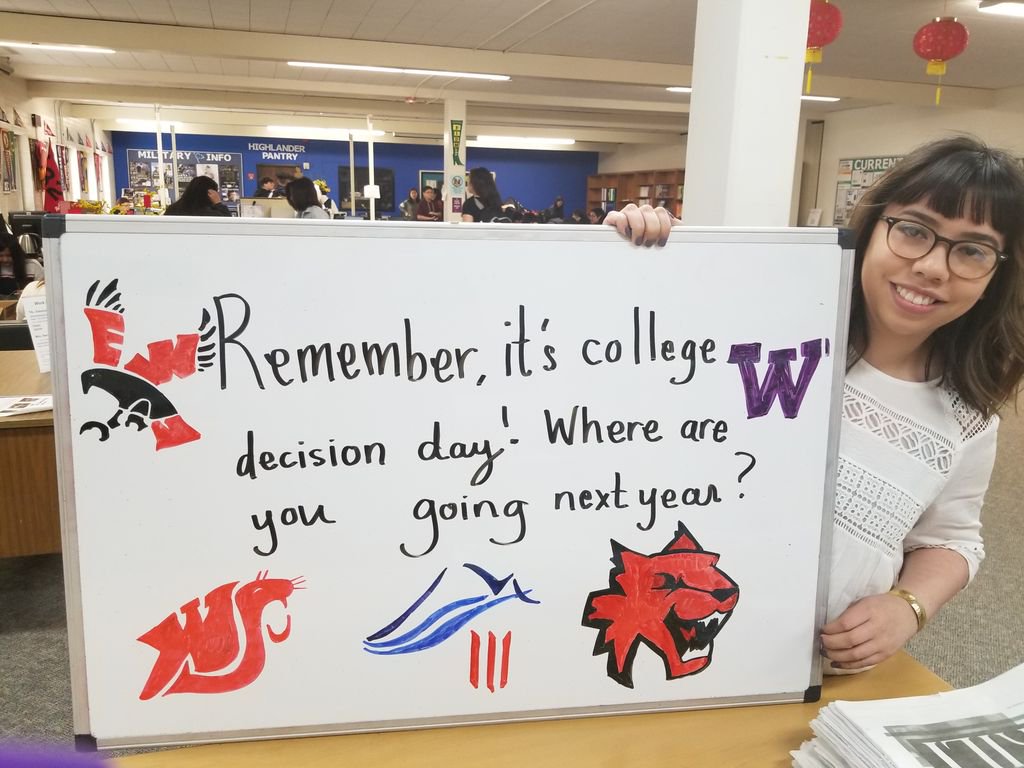 HIGHLANDER
PANTRY
MILITARY INFO
CURRENT
EW
Remember, it's college W
decision day! Where are
you going next year?